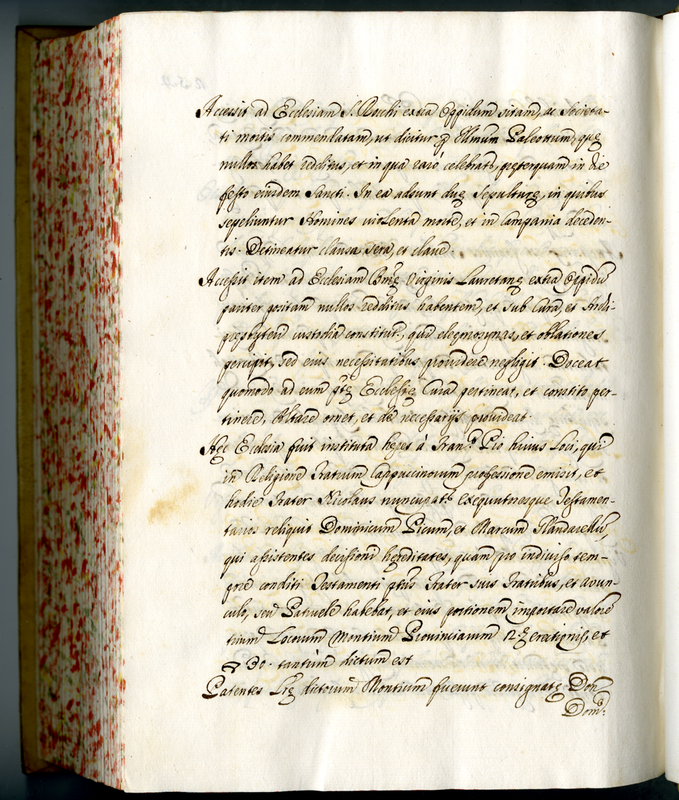 Accessit ad Ecclesiam S. Rochi extra Oppidum sitam, ac Societa-
ti mortis commendatam, ut dicitur p Illmum Paleottum, quę
nullos habet redditus, et in qua raro celebratr, pręterquam in die
festo eiusdem Sancti. In ea adsunt duę Sepulturę, in quibus
sepeliuntur Homines violenta morte, et in Campania deceden-
tis. Detineatur clausa sera, et clave.
Accessit item ad Ecclesiam Bmę Virginis Lauretanę extra Oppidũ
pariter positam nullos redditus habentem, et sub Cura, et Archi-
pręsbyteri custodia constitutã, qui eleęmosynas, et oblationes
percipit, sed eius necessitatibus providere negligit. Doceat
quomodo ad eum ptę Ecclesię Cura pertineat, et constito per-
tinere, Altare ornet, et de necessarijs provideat
Hęc Ecclesia fuit instituta heres à Franco Pio huius loci, qui
in Religione Fratrum Cappuccinorum professionẽ emisit, et
hodie Frater Nicolaus nuncupatr Exequutoresque Testamen-
tarios reliquit Dominicum Picum, et Marcum
qui assistentes divisioni hereditatis, quam pro indiviso tem-
pore conditi Testamenti ptus Frater suis Fratribus, et avun-
culo, seu Patruele habebat, et eius portionem importare valorẽ
trium Locorum Montium Provinciarum erectionis, et
30. tantùm dictum est
Patentes Lrę dictorum Montium fuerunt consignatę Don
Domo: